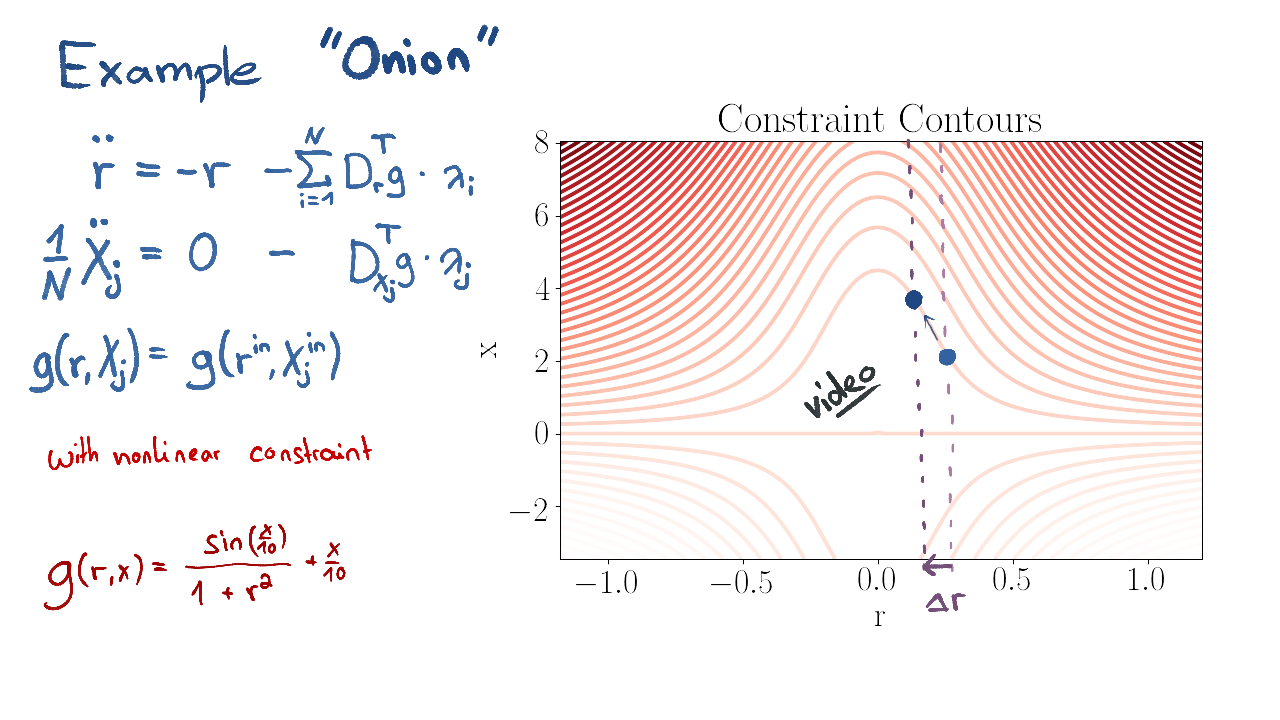 Example "Onion"
r̈ = -r - ∑_{i=1}^{N} D_r^T g · λ_i
1/N Ẍ_j = 0 - D_{X_j}^T g · λ_j
g(r, X_j) = g(r^{in}, X_j^{in})
with nonlinear constraint
g(r,x) = sin(x/10)/(1 + r²) + x/10
Constraint Contours
8
6
4
2
0
−2
x
video
−1.0 −0.5 0.0 0.5 1.0
Δr
r